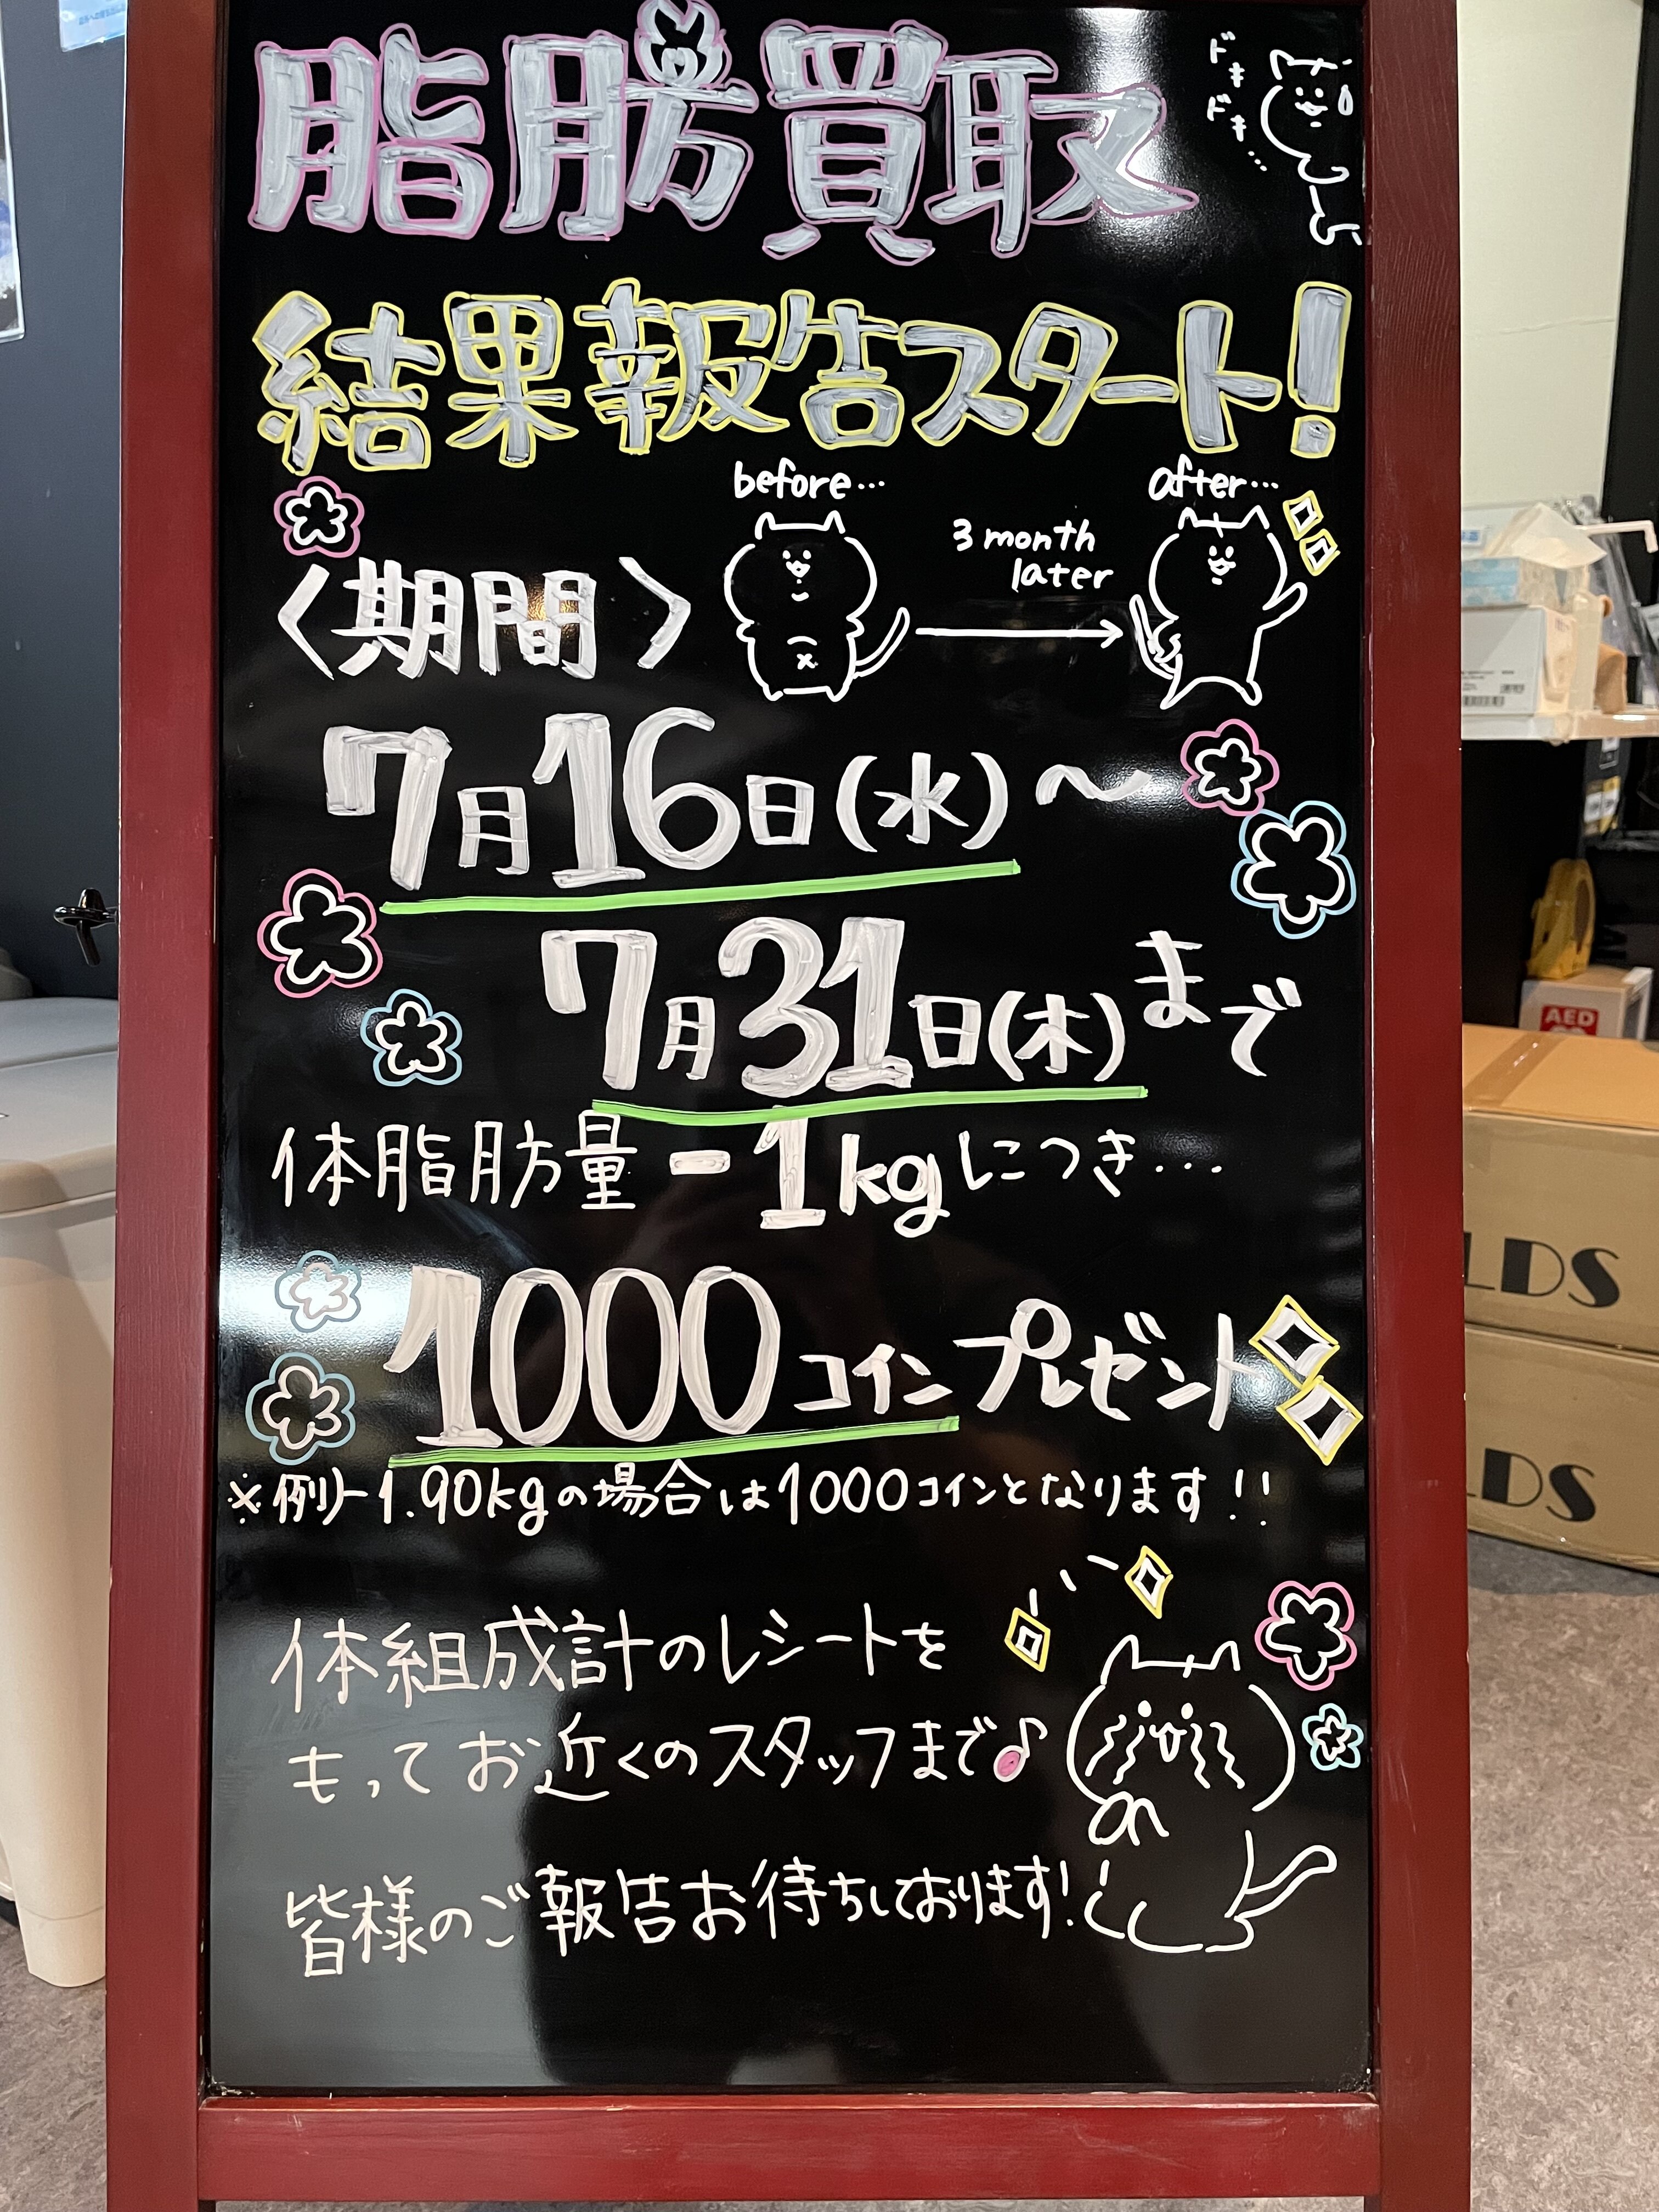 脂肪買取
ドキドキ…
結果報告スタート!
before…
after…
3 month
later
〈期間〉
7月16日(水)～
7月31日(木)まで
体脂肪量-1kgにつき…
1000コインプレゼント
※例)-1.90kgの場合は1000コインとなります!!
体組成計のレシートを
もってお近くのスタッフまで♪
皆様のご報告お待ちしております!
AED
LDS
LDS